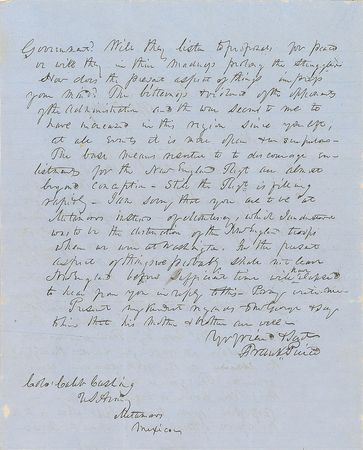 Government. Will they listen to proposals for peace
or will they in their madness prolong the struggle
How does the present aspect of things impress
your mind? The bitterness & violence of the opponents
of the Administration and the war seems to me to
have increased in this region since you left,
at all events it is more open & unscrupulous -
The base means resorted to to discourage en-
listments for the New England Regt are almost
beyond conception - Still the Regt is filling
rapidly - I am sorry that you are to be at
Matamoros instead of Monterey, which I understood
was to be the destination of the New England troops
when we were at Washington. In the present
aspect of things we probably shall not leave
New England before sufficient time will have elapsed
to hear from you in reply to this - Pray write me
Present my kindest regards to Mr George & say
to him that his mother & brother are well -
Yr friend & Svt
Frank Pierce
Col: Caleb Cushing
U S Army
Matamoros
Mexico